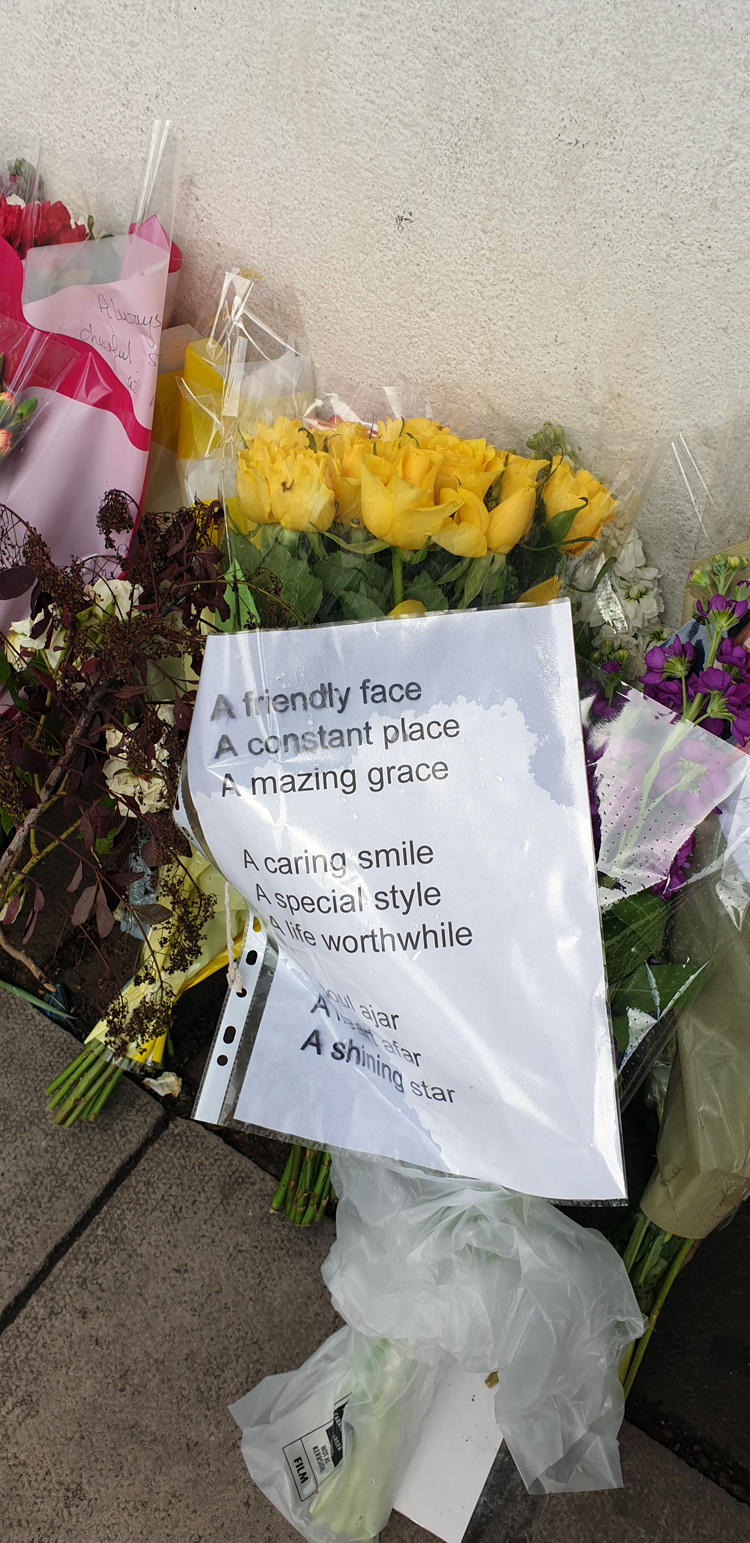 Always
cheerful
A friendly face
A constant place
A mazing grace
A caring smile
A special style
A life worthwhile
ajar
A heart afar
A shining star
NOT AT
KERBSIDE
FILM